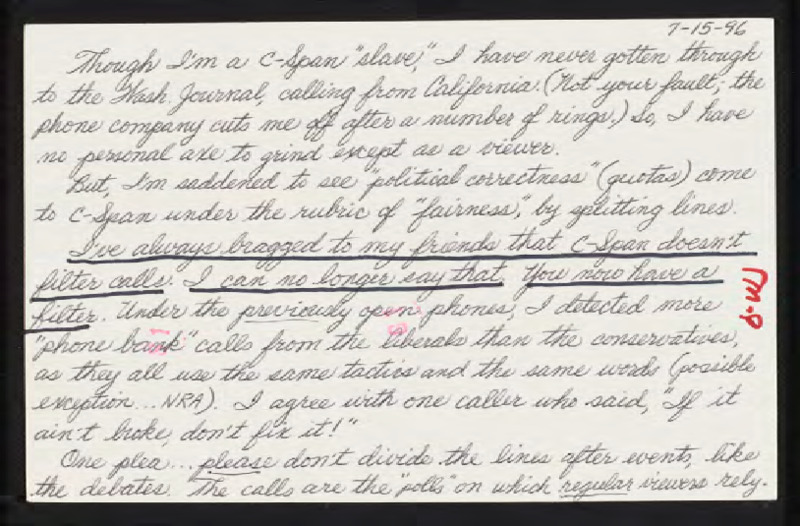 7-15-96
Though I'm a C-Span "slave," I have never gotten through
to the Wash. Journal, calling from California. (Not your fault; the
phone company cuts me off after a number of rings.) So, I have
no personal axe to grind except as a viewer.
But, I'm saddened to see "political correctness" (quotas) come
to C-Span under the rubric of "fairness", by splitting lines.
I've always bragged to my friends that C-Span doesn't
filter calls. I can no longer say that. You now have a
filter. Under the previously open phones, I detected more
"phone bank" calls from the liberals than the conservatives,
as they all use the same tactics and the same words (possible
exception... NRA). I agree with one caller who said, "If it
ain't broke, don't fix it!"
One plea... please don't divide the lines after events, like
the debates. The calls are the "polls" on which regular viewers rely.